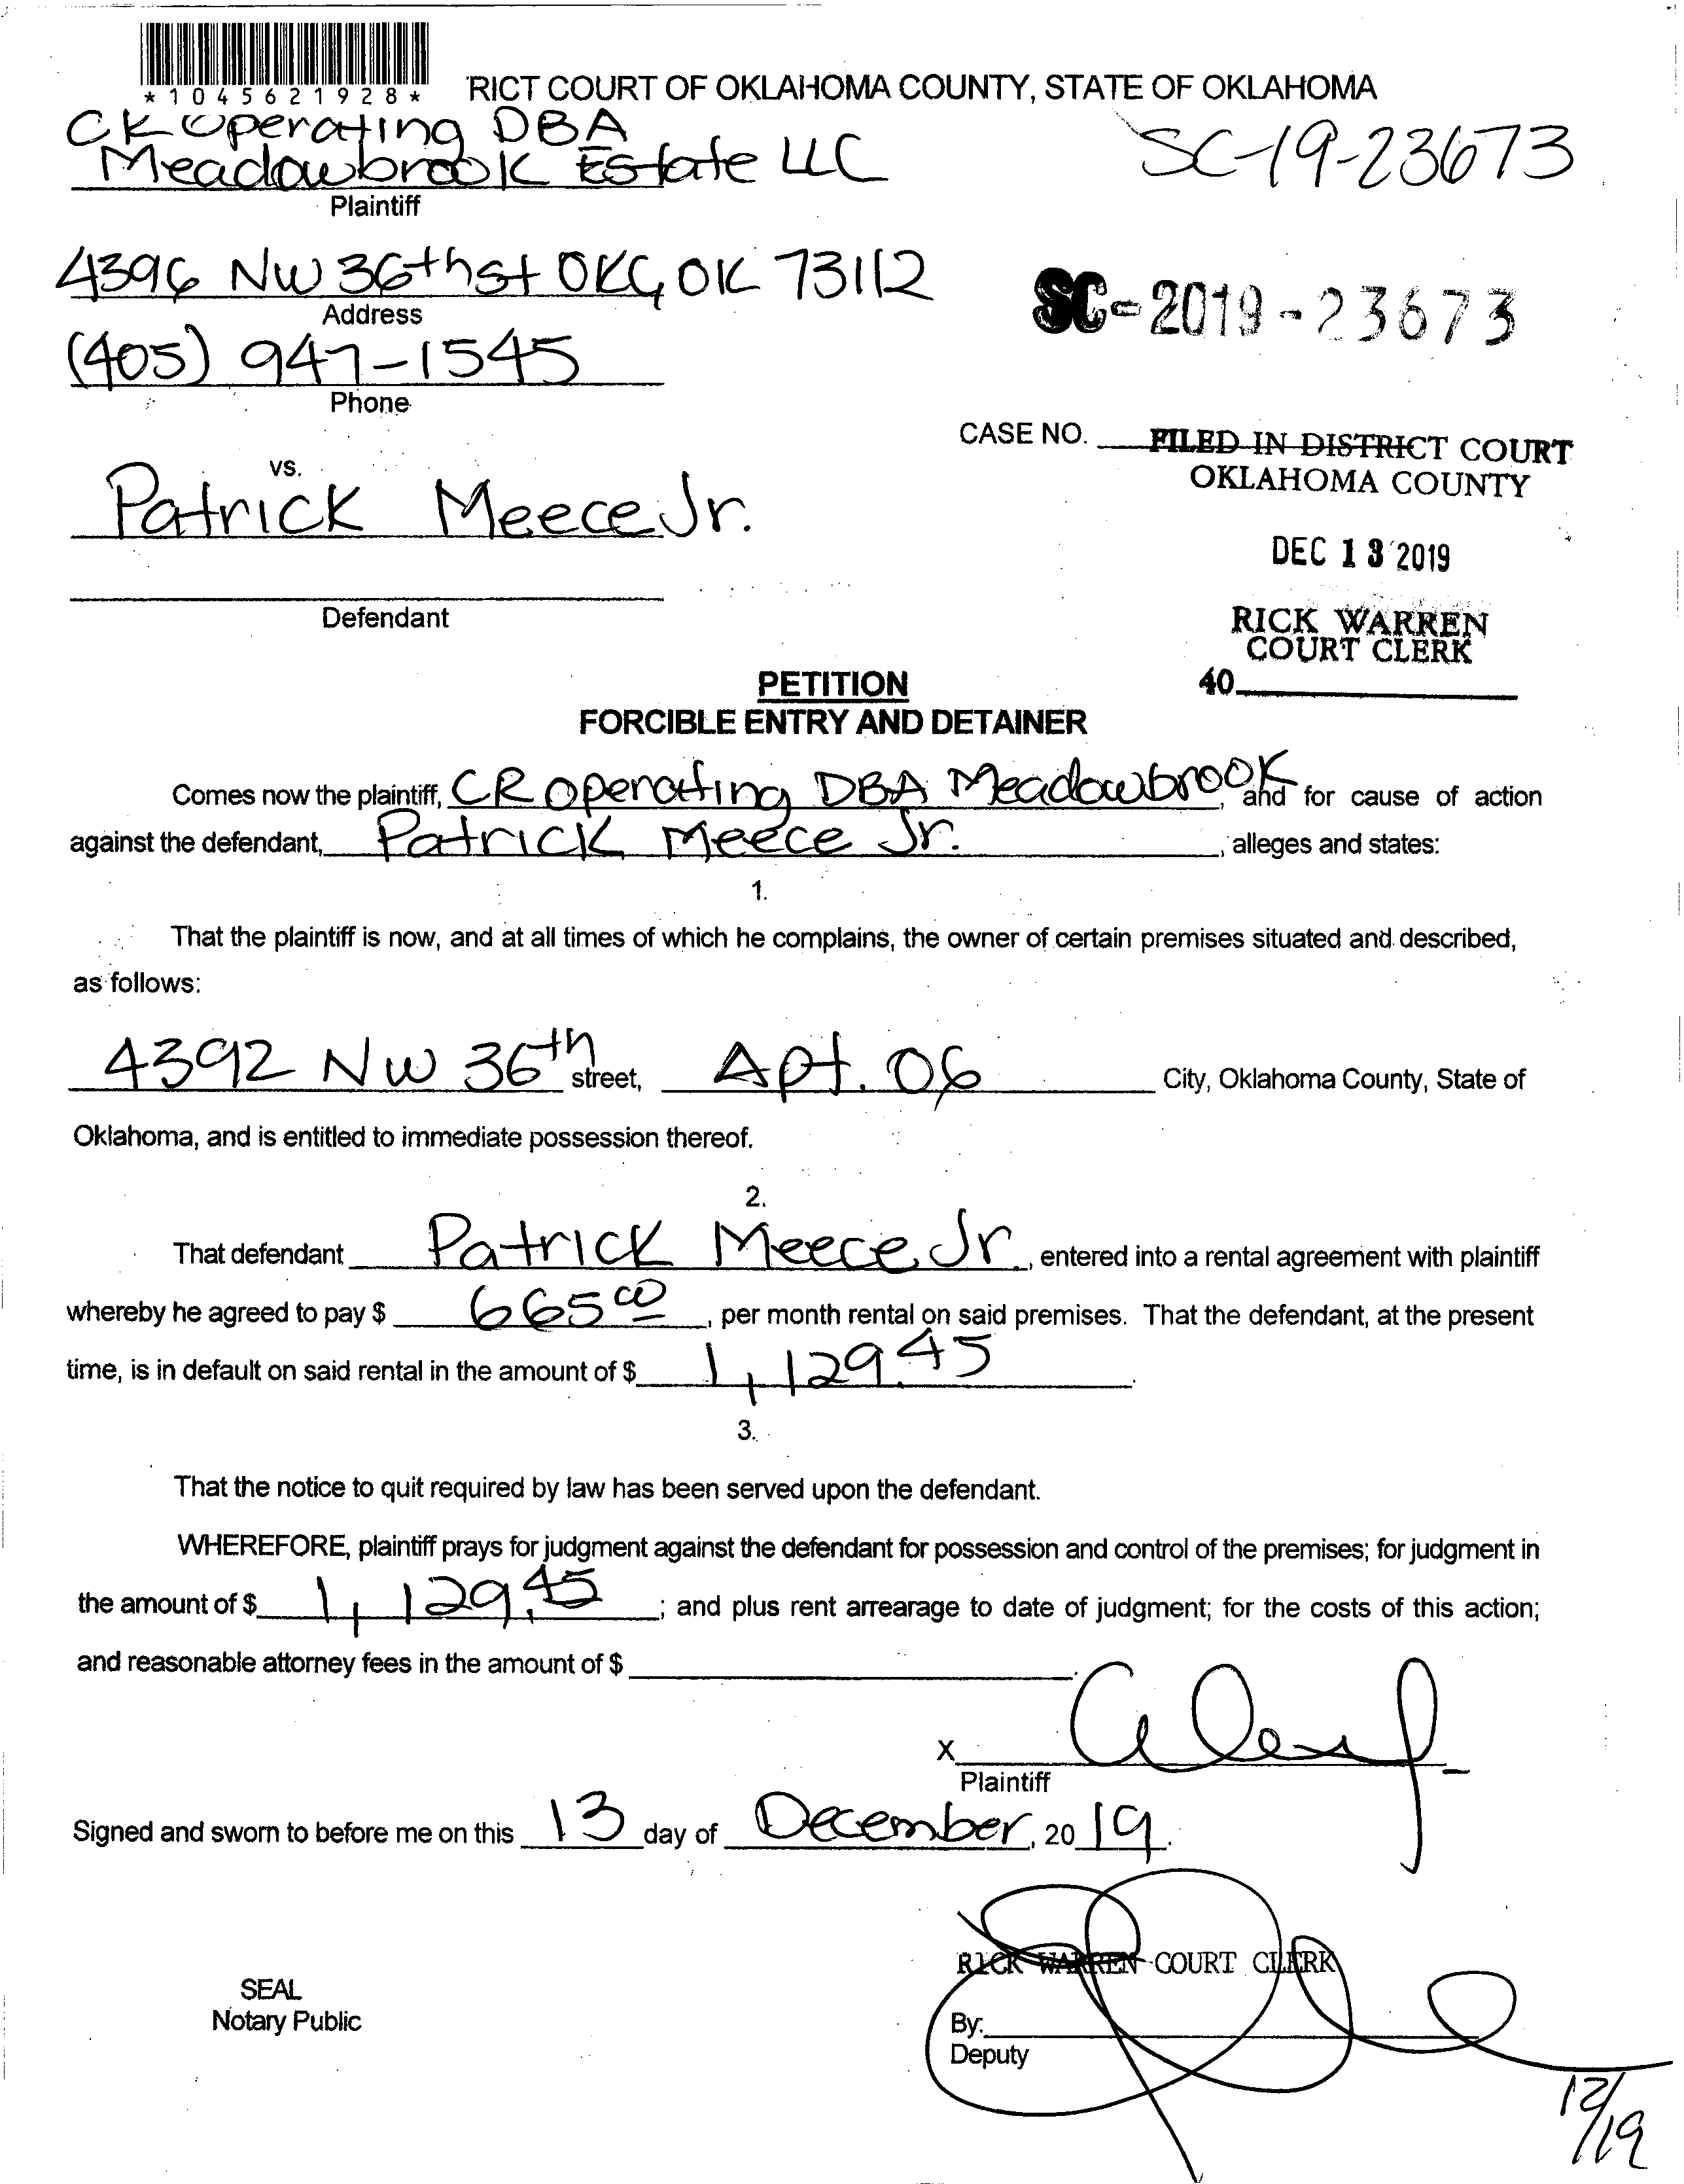 *1045621928*
RICT COURT OF OKLAHOMA COUNTY, STATE OF OKLAHOMA
CK Operating DBA
Meadowbrook Estate LLC
SC-19-23673
Plaintiff
4396 NW 36th st OKC, OK 73112
Address
SC-2019-23673
(405) 947-1545
Phone
CASE NO.
FILED IN DISTRICT COURT
OKLAHOMA COUNTY
vs.
Patrick Meece Jr.
DEC 13 2019
Defendant
RICK WARREN
COURT CLERK
40
PETITION
FORCIBLE ENTRY AND DETAINER
Comes now the plaintiff, CR Operating DBA Meadowbrook, and for cause of action
against the defendant, Patrick Meece Jr., alleges and states:
1.
That the plaintiff is now, and at all times of which he complains, the owner of certain premises situated and described,
as follows:
4392 NW 36th street, Apt. 06 City, Oklahoma County, State of
Oklahoma, and is entitled to immediate possession thereof.
2.
That defendant Patrick Meece Jr., entered into a rental agreement with plaintiff
whereby he agreed to pay $ 665 00, per month rental on said premises. That the defendant, at the present
time, is in default on said rental in the amount of $ 1,129.45.
3.
That the notice to quit required by law has been served upon the defendant.
WHEREFORE, plaintiff prays for judgment against the defendant for possession and control of the premises; for judgment in
the amount of $ 1,129.45; and plus rent arrearage to date of judgment; for the costs of this action;
and reasonable attorney fees in the amount of $
X
Plaintiff
Signed and sworn to before me on this 13 day of December, 2019.
RICK WARREN COURT CLERK
SEAL
Notary Public
By:
Deputy
12/19